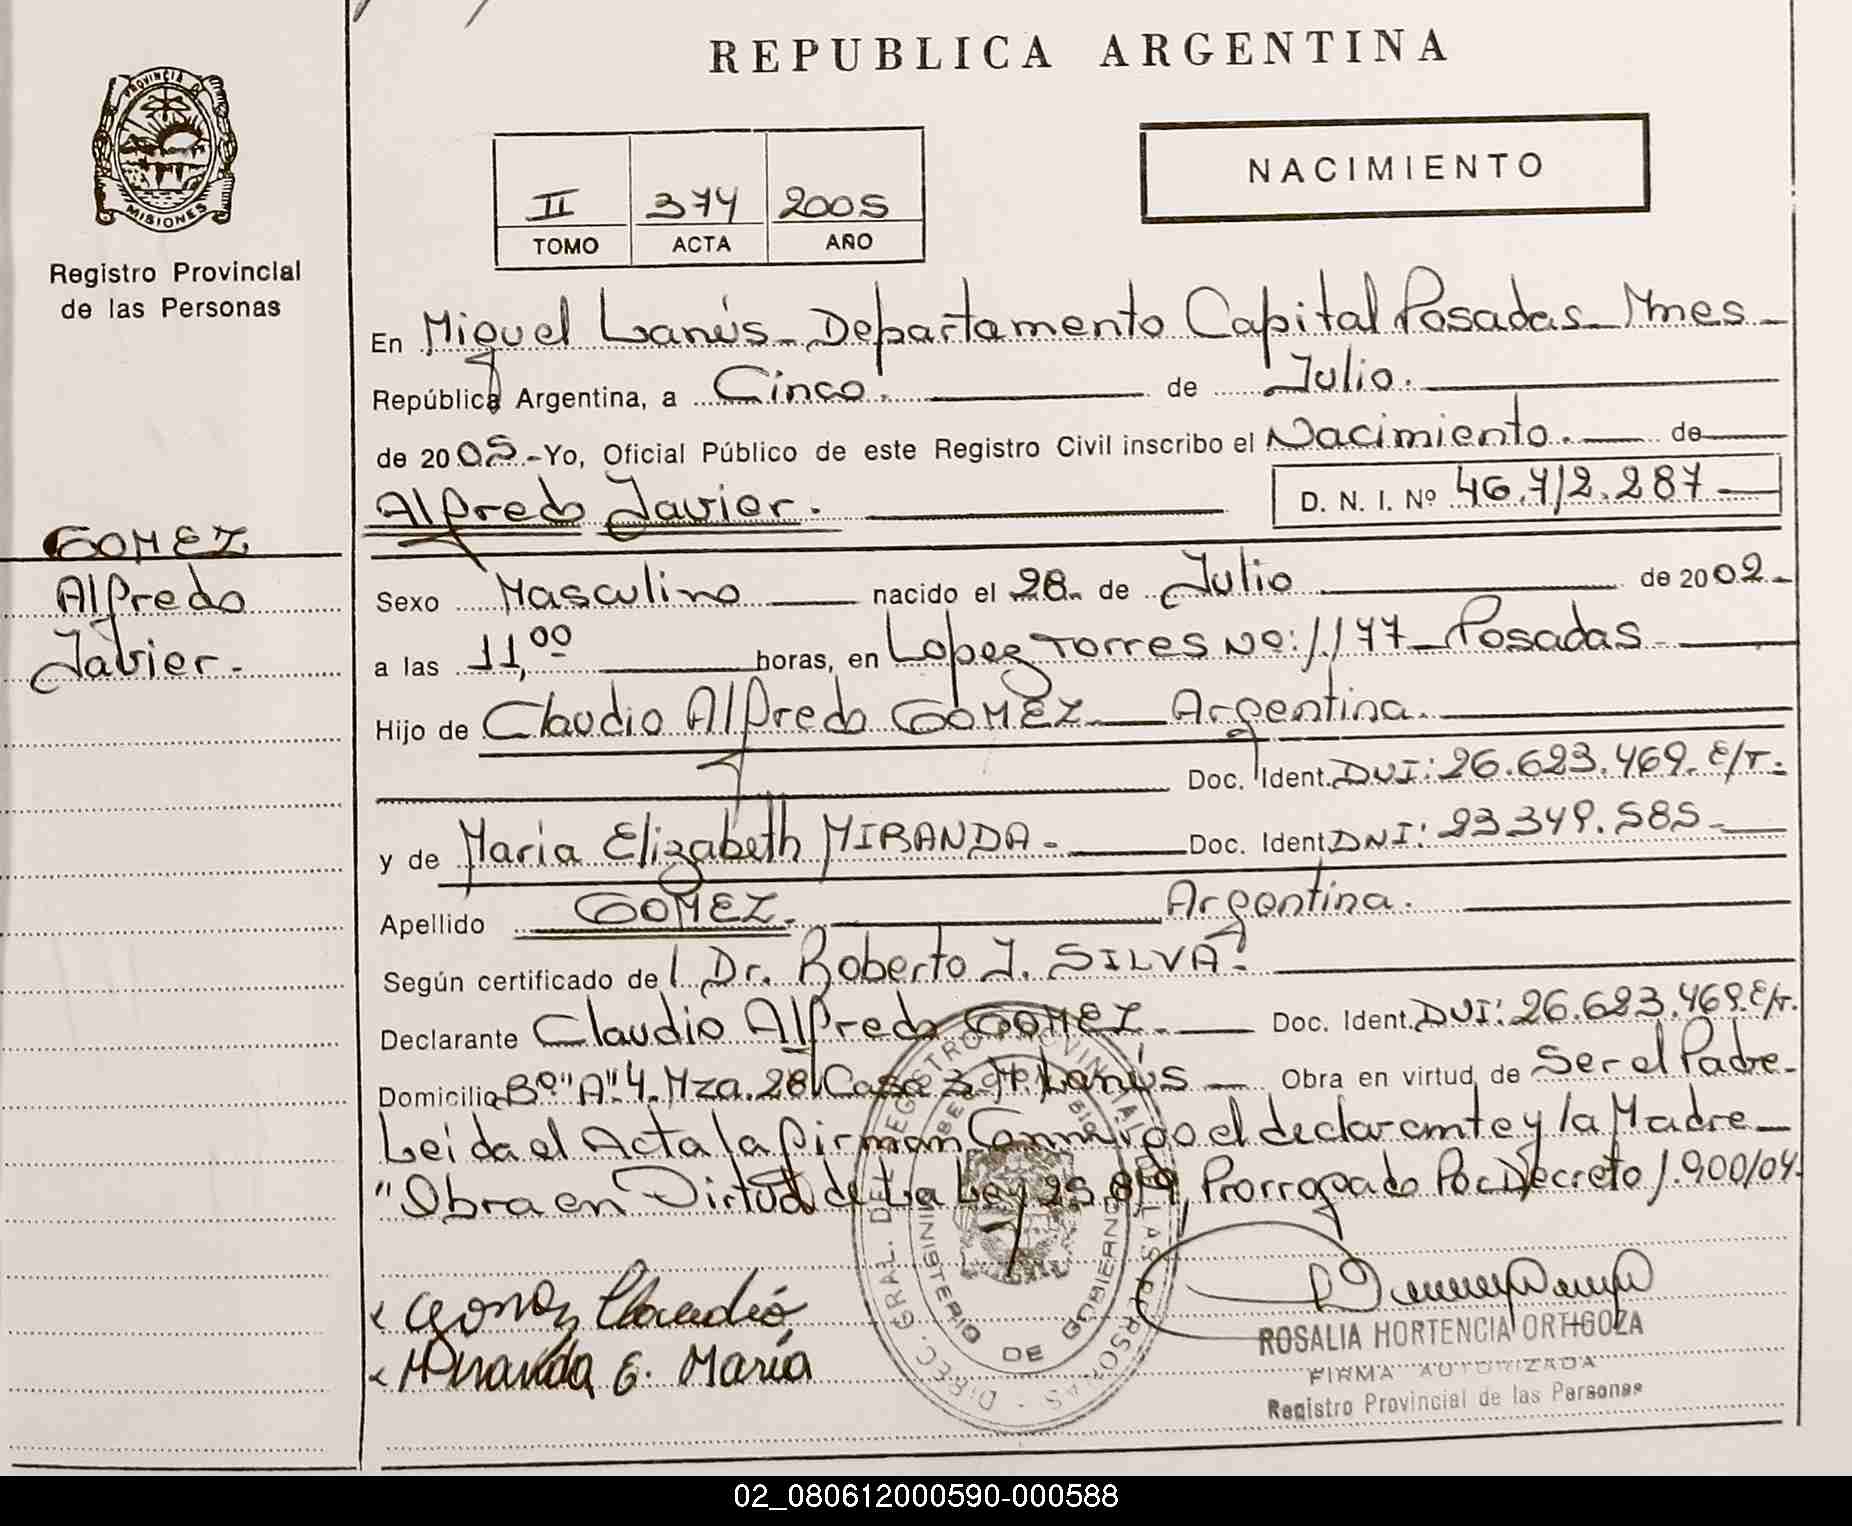 REPUBLICA ARGENTINA
PROVINCIA DE
MISIONES
Registro Provincial
de las Personas
NACIMIENTO
II 374 2005
TOMO ACTA AÑO
En Miguel Lanús - Departamento Capital Posadas - Mnes -
República Argentina, a Cinco. de Julio.
de 2005.- Yo, Oficial Público de este Registro Civil inscribo el Nacimiento. de
Alfredo Javier. D. N. I. Nº 46.712.287
GOMEZ
Alfredo
Javier.-
Sexo Masculino nacido el 28. de Julio de 2002.-
a las 11,00 horas, en Lopez Torres Nº: 1.177 - Posadas -
Hijo de Claudio Alfredo GOMEZ Argentina.
Doc. Ident. DNI: 26.623.469. E/T.
y de Maria Elizabeth MIRANDA - Doc. Ident DNI: 23.349.585 -
Apellido GOMEZ. Argentina.
Según certificado del Dr. Roberto J. SILVA.
Declarante Claudio Alfredo GOMEZ. Doc. Ident. DNI: 26.623.469. E/T.
Domicilio Bº "A" 4. Mza. 28 Casa 3 M. Lanús - Obra en virtud de Ser el Padre -
Leida el Acta la firman Conmigo el declarante y la Madre -
"Obra en Virtud de La Ley 25.819, Prorrogado Por Decreto 1.900/04.
DIREC. GRAL. DEL REGISTRO PROVINCIAL DE LAS PERSONAS
MINISTERIO DE GOBIERNO
Gomez Claudio
Miranda E. María
ROSALIA HORTENCIA ORTIGOZA
FIRMA AUTORIZADA
Registro Provincial de las Personas
02_080612000590-000588